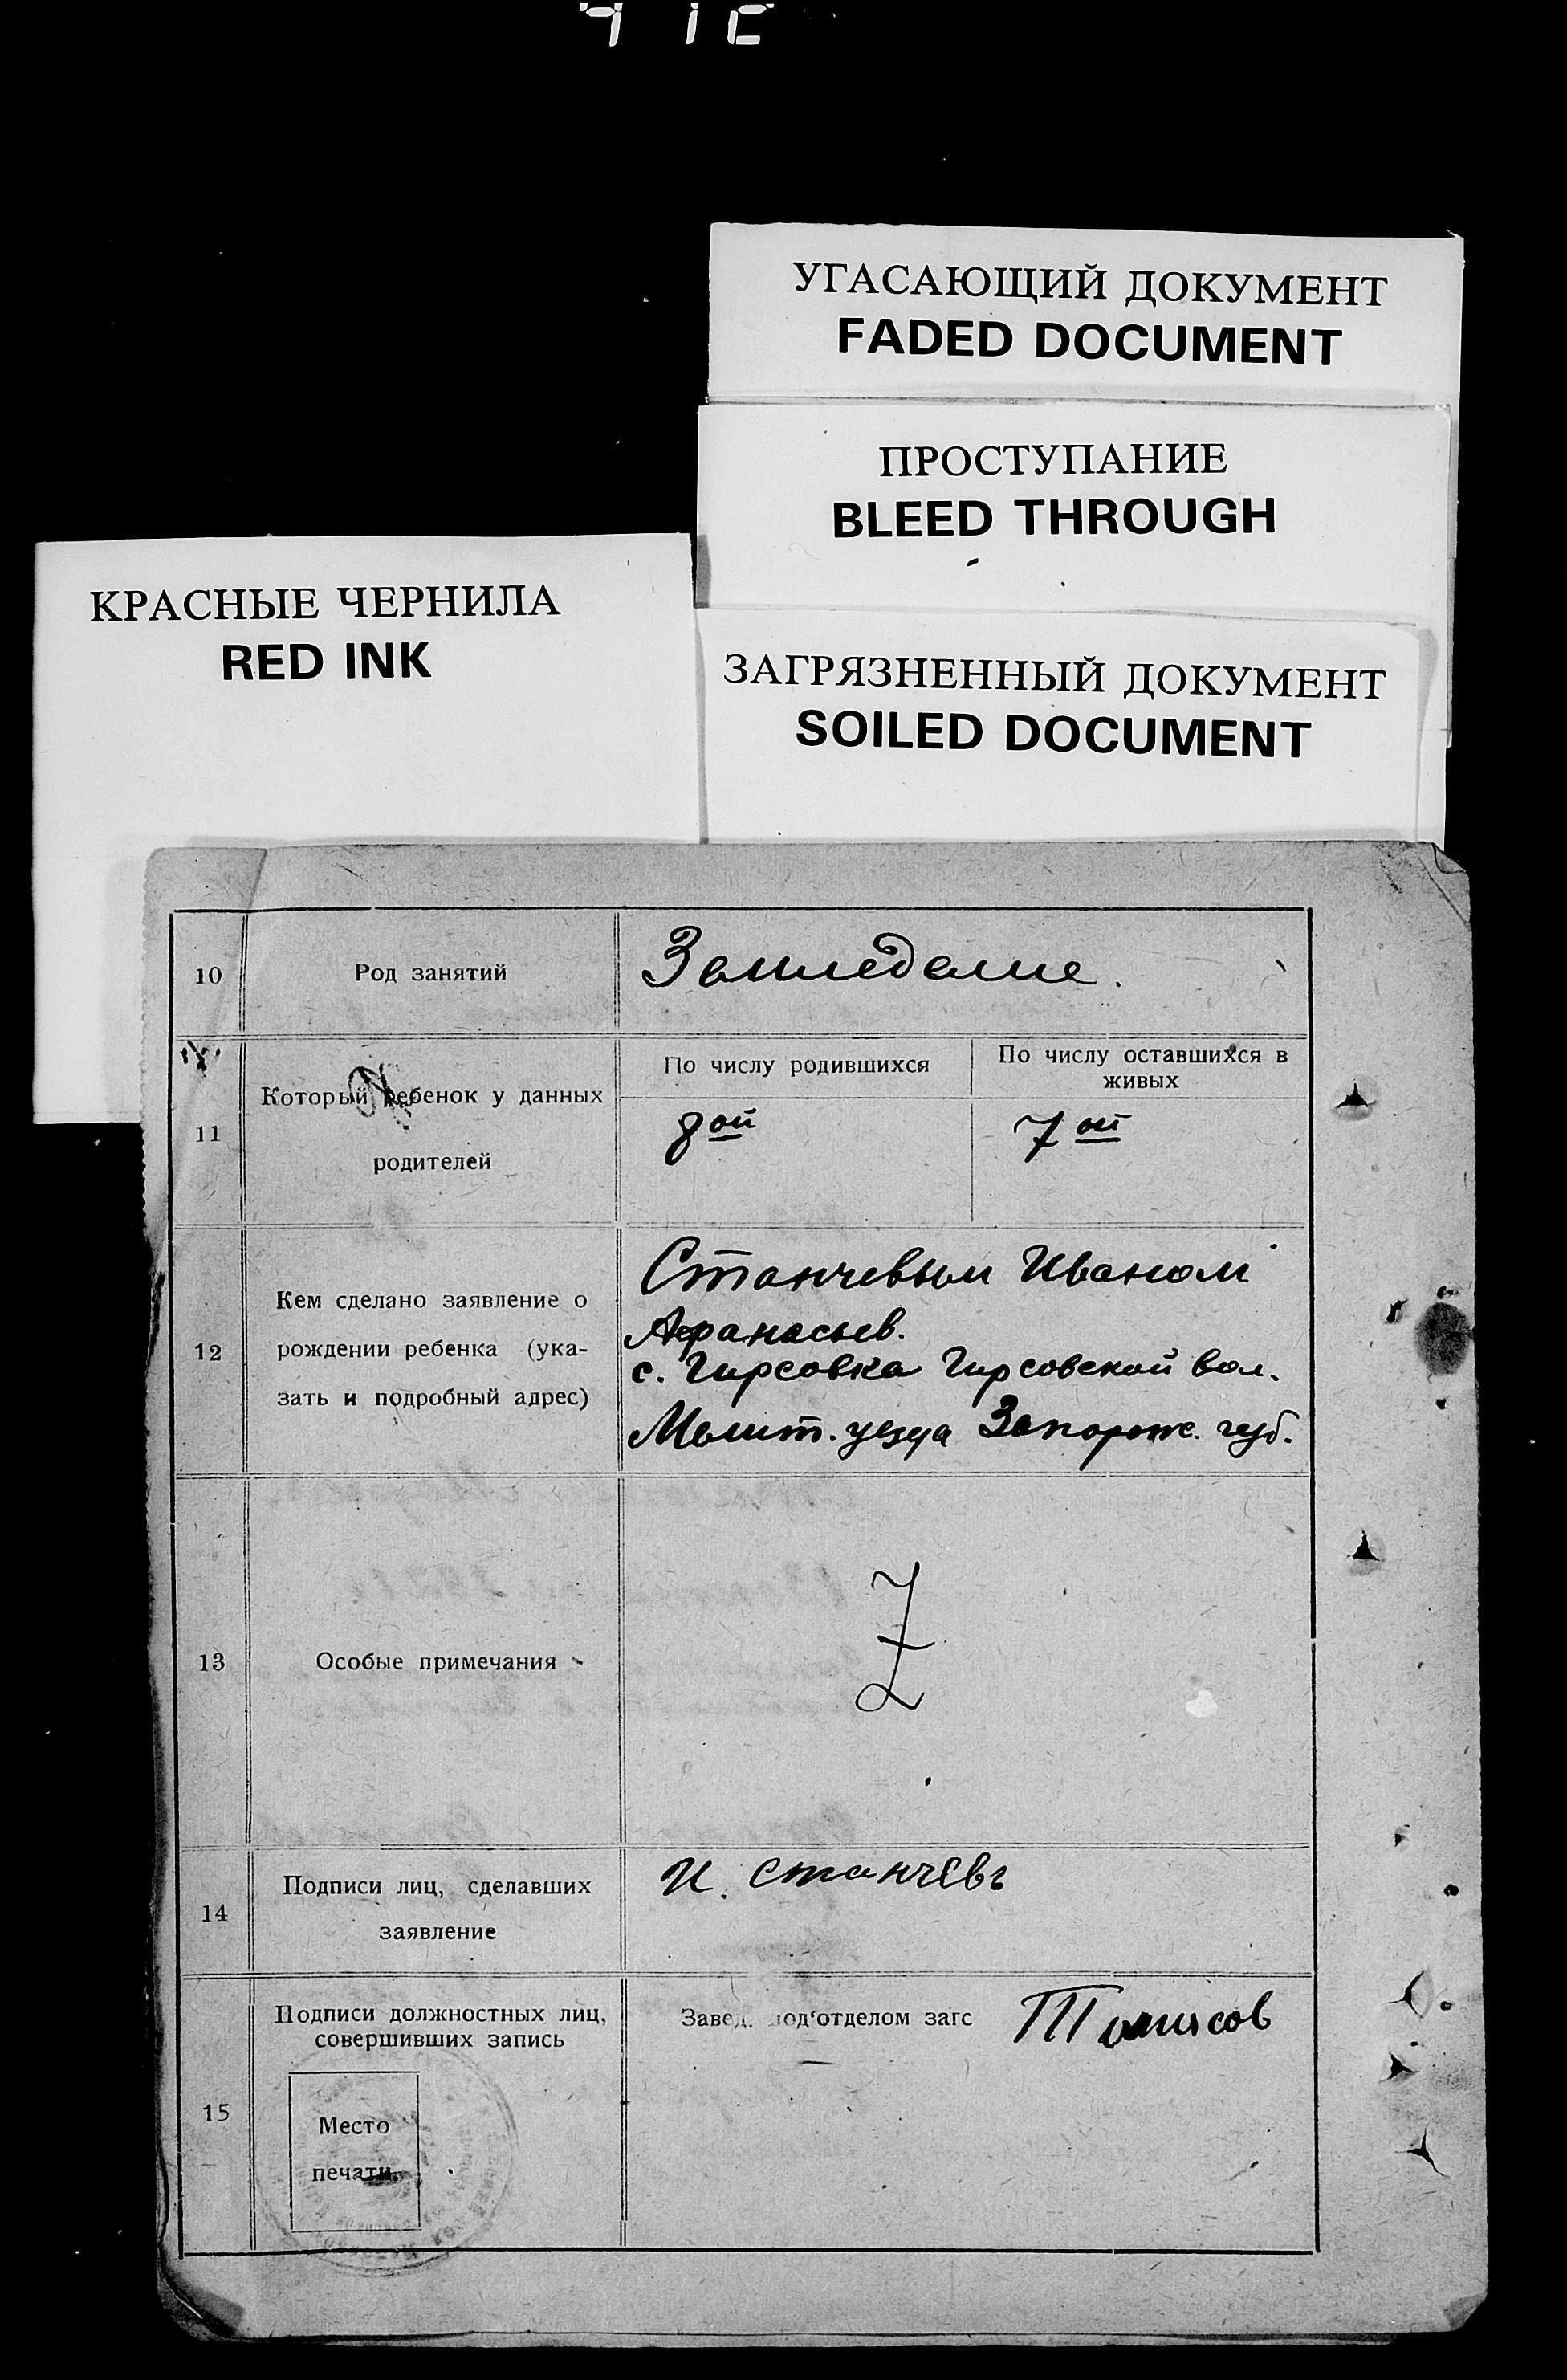 УГАСАЮЩИЙ ДОКУМЕНТ
FADED DOCUMENT
ПРОСТУПАНИЕ
BLEED THROUGH
КРАСНЫЕ ЧЕРНИЛА
RED INK
ЗАГРЯЗНЕННЫЙ ДОКУМЕНТ
SOILED DOCUMENT
10 Род занятий Земледелие.
11 Который ребенок у данных родителей
По числу родившихся
По числу оставшихся в живых
8ой
7ой
12 Кем сделано заявление о
рождении ребенка (ука-
зать и подробный адрес)
Станчевым Иваном
Афанасьев.
с. Гирсовка Гирсовской вол.
Мелит. уезда Запорож. губ.
13 Особые примечания
Z
14 Подписи лиц, сделавших
заявление
И. Станчевъ
15 Подписи должностных лиц,
совершивших запись
Завед. под'отделом загс
Место
печати.